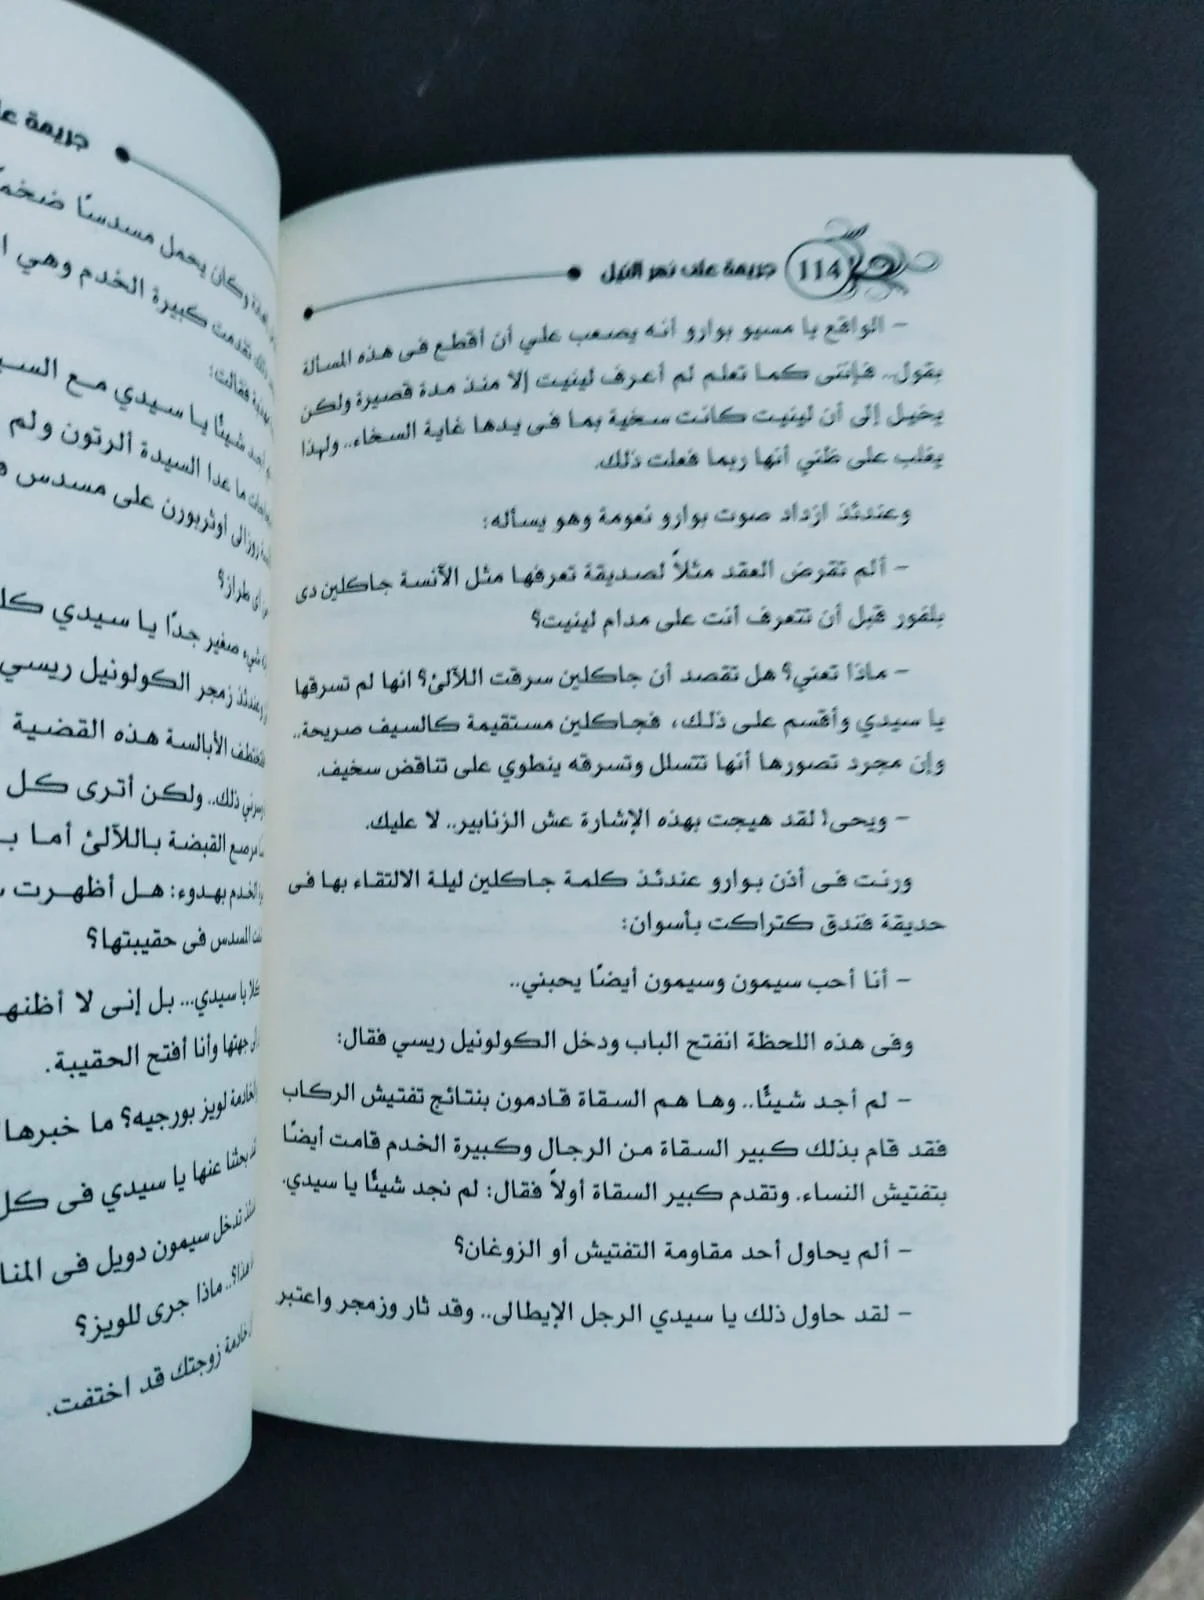 114 جريمة على نهر النيل
– الواقع يا مسيو بوارو أنه يصعب علي أن أقطع فى هذه المسألة
بقول.. فإننى كما تعلم لم أعرف لينيت إلا منذ مدة قصيرة ولكن
يخيل إلى أن لينيت كانت سخية بما فى يدها غاية السخاء.. ولهذا
يغلب على ظني أنها ربما فعلت ذلك.
وعندئذ ازداد صوت بوارو نعومة وهو يسأله:
– ألم تقرض العقد مثلاً لصديقة تعرفها مثل الآنسة جاكلين دى
بلفور قبل أن تتعرف أنت على مدام لينيت؟
– ماذا تعني؟ هل تقصد أن جاكلين سرقت اللآلئ؟ انها لم تسرقها
يا سيدي وأقسم على ذلك، فجاكلين مستقيمة كالسيف صريحة..
وإن مجرد تصورها أنها تتسلل وتسرقه ينطوي على تناقض سخيف.
– ويحى! لقد هيجت بهذه الإشارة عش الزنابير.. لا عليك.
ورنت فى أذن بوارو عندئذ كلمة جاكلين ليلة الالتقاء بها فى
حديقة فندق كتراكت بأسوان:
– أنا أحب سيمون وسيمون أيضًا يحبني..
وفى هذه اللحظة انفتح الباب ودخل الكولونيل ريسي فقال:
– لم أجد شيئًا.. وها هم السقاة قادمون بنتائج تفتيش الركاب
فقد قام بذلك كبير السقاة من الرجال وكبيرة الخدم قامت أيضًا
بتفتيش النساء. وتقدم كبير السقاة أولاً فقال: لم نجد شيئًا يا سيدي.
– ألم يحاول أحد مقاومة التفتيش أو الزوغان؟
– لقد حاول ذلك يا سيدي الرجل الإيطالى.. وقد ثار وزمجر واعتبر
جريمة
وكان يحمل مسدسًا
تقدمت كبيرة الخدم وهي
فقالت:
شيئًا يا سيدي مع
ما عدا السيدة ألرتون ولم
روزالى أوثربورن على مسدس
طراز؟
صغير جدًا يا سيدي
وعندئذ زمجر الكولونيل ريسي
الأبالسة هذه القضية
ذلك.. ولكن أترى كل
مرصع القبضة باللآلئ أما
الخدم بهدوء: هل أظهرت
المسدس فى حقيبتها؟
كلا يا سيدي... بل إنى لا أظنها
جهتها وأنا أفتح الحقيبة.
لويز بورجيه؟ ما خبرها
بحثنا عنها يا سيدي فى
تدخل سيمون دويل فى
ماذا جرى للويز؟
خادمة زوجتك قد اختفت.